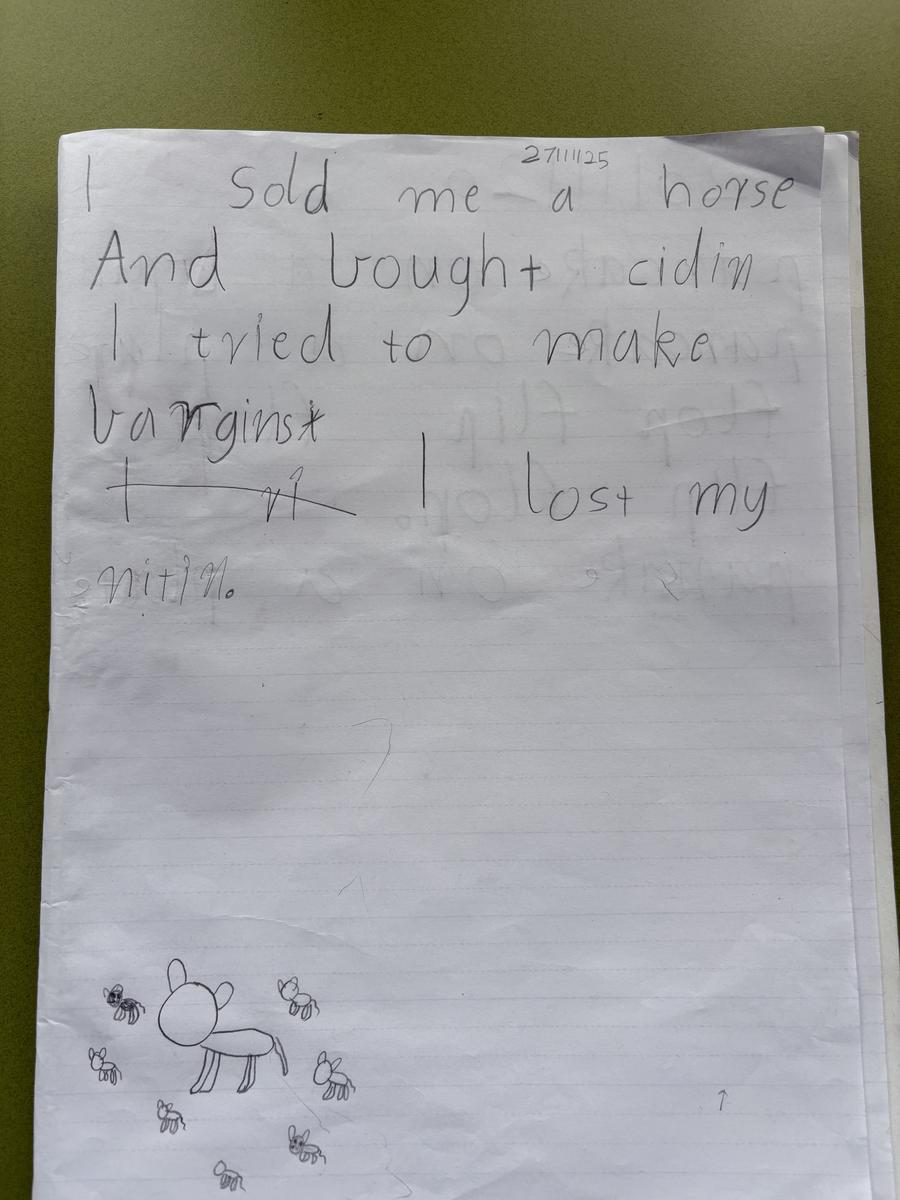 27/11/25
I sold me a horse
And bought cidin
I tried to make
bargins
I lost my
mitin.